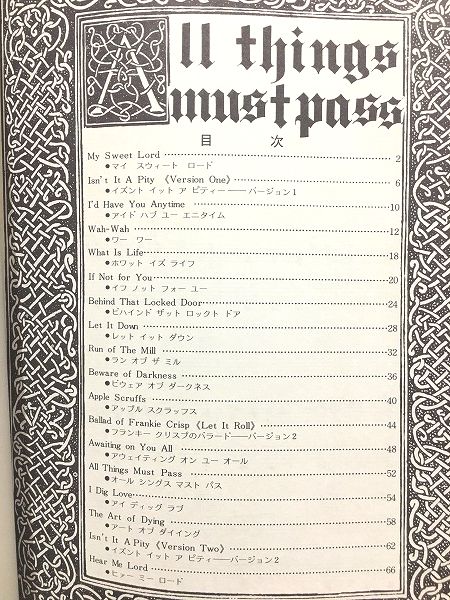 All things
must pass
目 次
My Sweet Lord 2
●マイ スウィート ロード
Isn't It A Pity 《Version One》 6
●イズント イット ア ピティー――バージョン1
I'd Have You Anytime 10
●アイド ハブ ユー エニタイム
Wah-Wah 12
●ワー ワー
What Is Life 18
●ホワット イズ ライフ
If Not for You 20
●イフ ノット フォー ユー
Behind That Locked Door 24
●ビハインド ザット ロックト ドア
Let It Down 28
●レット イット ダウン
Run of The Mill 32
●ラン オブ ザ ミル
Beware of Darkness 36
●ビウェア オブ ダークネス
Apple Scruffs 40
●アップル スクラッフス
Ballad of Frankie Crisp《Let It Roll》 44
●フランキー クリスプのバラード――バージョン2
Awaiting on You All 48
●アウェイティング オン ユー オール
All Things Must Pass 52
●オール シングス マスト パス
I Dig Love 54
●アイ ディッグ ラブ
The Art of Dying 58
●アート オブ ダイイング
Isn't It A Pity《Version Two》 62
●イズント イット ア ピティー――バージョン2
Hear Me Lord 66
●ヒァー ミー ロード